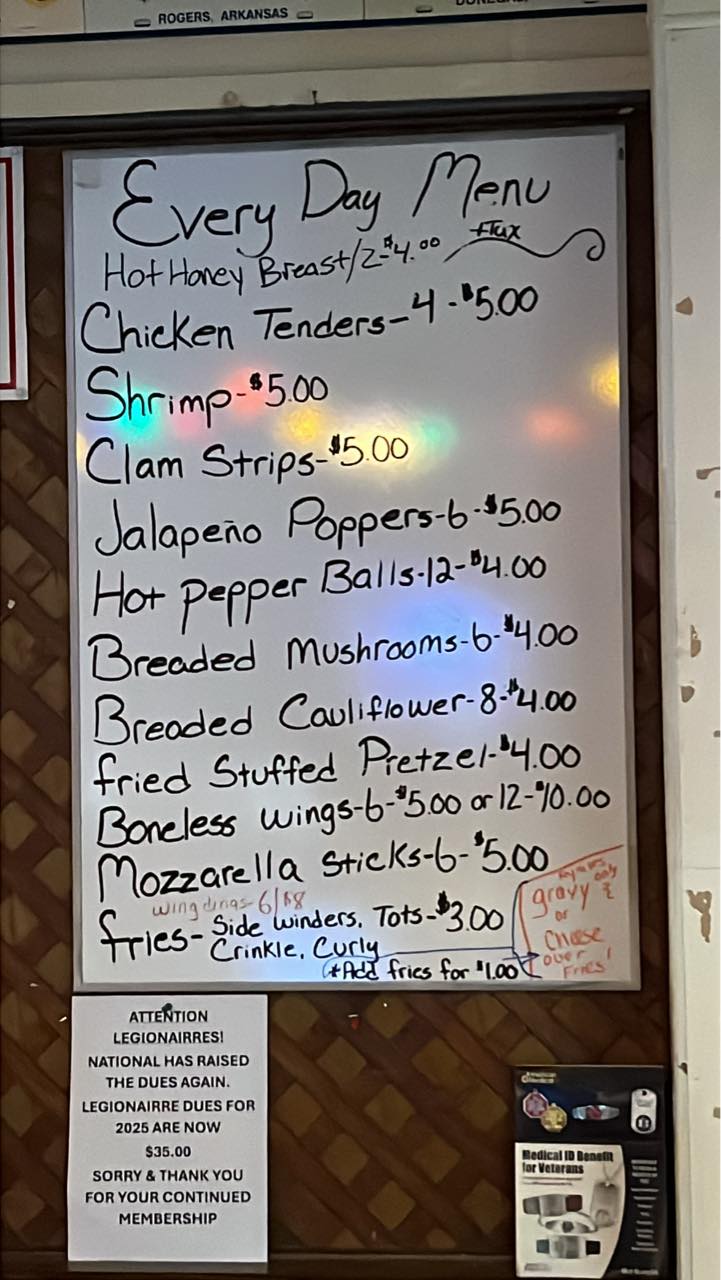 ROGERS, ARKANSAS
Every Day Menu
Hot Honey Breast/2-$4.00 +Tax
Chicken Tenders-4-$5.00
Shrimp-$5.00
Clam Strips-$5.00
Jalapeño Poppers-6-$5.00
Hot pepper Balls-12-$4.00
Breaded Mushrooms-6-$4.00
Breaded Cauliflower-8-$4.00
fried Stuffed Pretzel-$4.00
Boneless wings-6-$5.00 or 12-$10.00
Mozzarella sticks-6-$5.00
wing dings-6/$8
fries-Side winders, Tots-$3.00
Crinkle, Curly
*Add fries for $1.00
only
gravy &
or
Cheese
over
Fries!
ATTENTION
LEGIONAIRRES!
NATIONAL HAS RAISED
THE DUES AGAIN.
LEGIONAIRRE DUES FOR
2025 ARE NOW
$35.00
SORRY & THANK YOU
FOR YOUR CONTINUED
MEMBERSHIP
Medical ID Benefit
for Veterans